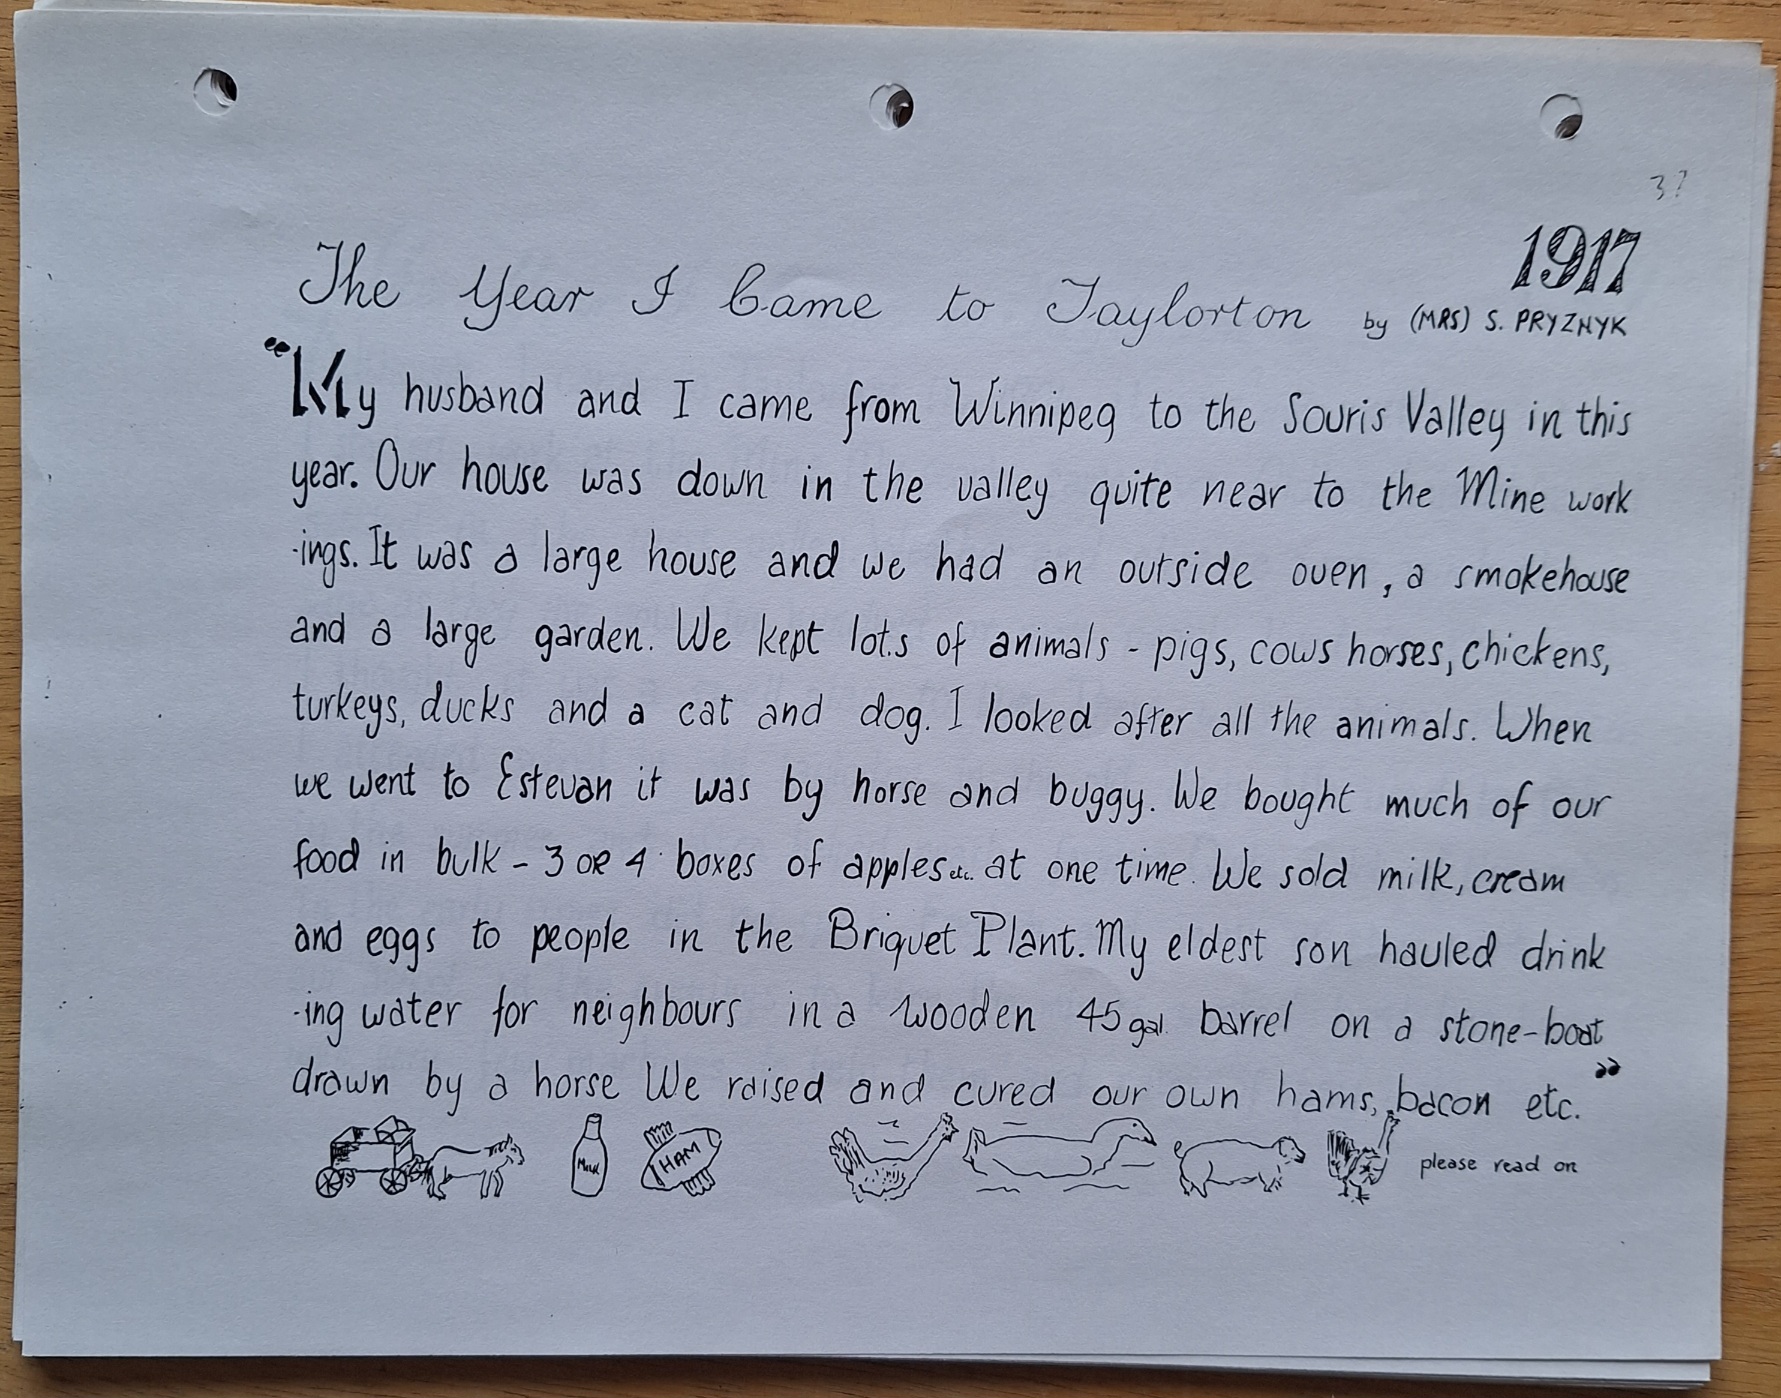 37
1917
The Year I Came to Taylorton by (MRS) S. PRYZNYK
"My husband and I came from Winnipeg to the Souris Valley in this
year. Our house was down in the valley quite near to the Mine work
-ings. It was a large house and we had an outside oven, a smokehouse
and a large garden. We kept lots of animals - pigs, cows horses, chickens,
turkeys, ducks and a cat and dog. I looked after all the animals. When
we went to Estevan it was by horse and buggy. We bought much of our
food in bulk - 3 OR 4 boxes of apples etc. at one time. We sold milk, cream
and eggs to people in the Briquet Plant. My eldest son hauled drink
-ing water for neighbours in a wooden 45 gal. barrel on a stone-boat
drawn by a horse We raised and cured our own hams, bacon etc."
Milk
HAM
please read on